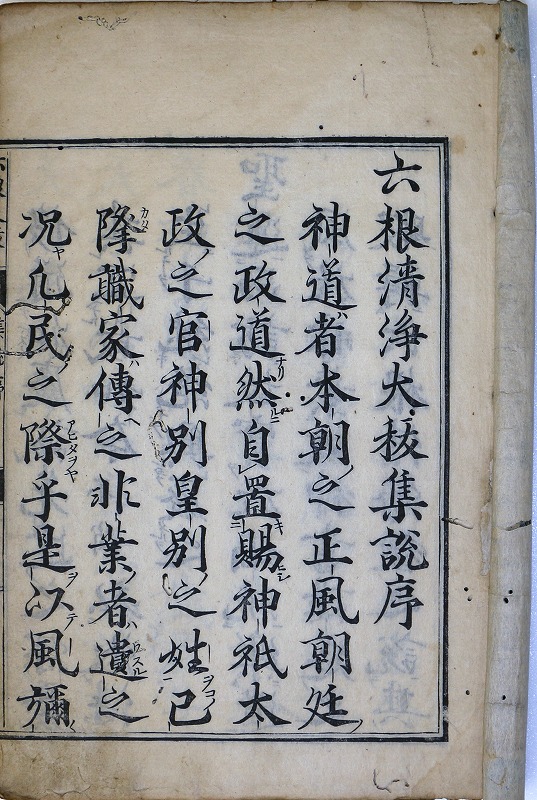 六根清浄大祓集説序
神道者本朝之正風朝廷
之政道然自置賜神祇太
政之官神別皇別之姓已
降職家傳之非業者遺之
况凢民之際乎是以風彌